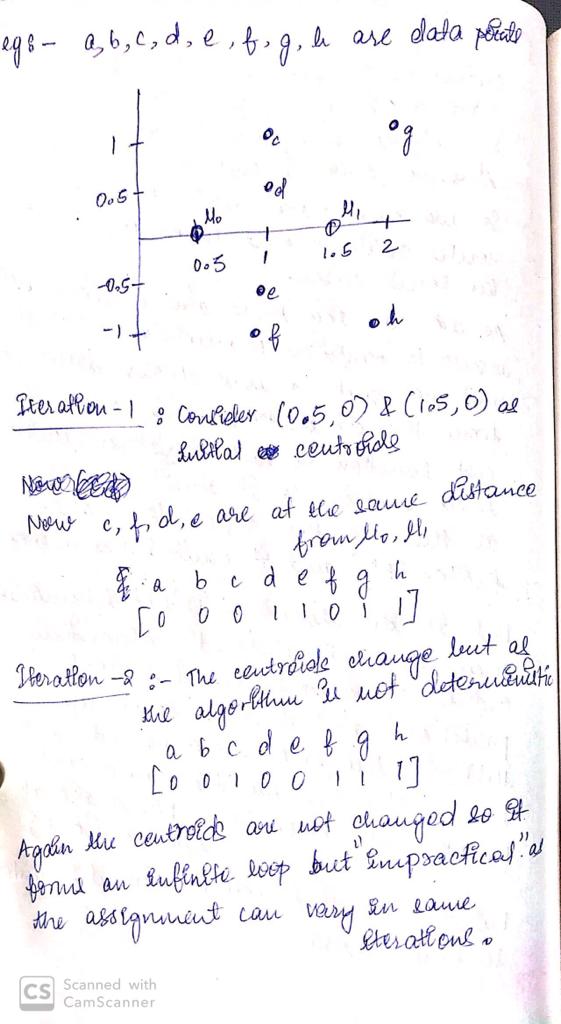 eg:- a, b, c, d, e, f, g, h are data points
1 c g
0.5 d
M0 M1
0.5 1 1.5 2
-0.5 e
-1 f h
Iteration-1 : Consider (0.5, 0) & (1.5, 0) as
initial centroids
Now
Now c, f, d, e are at the same distance
from M0, M1
a b c d e f g h
[0 0 0 1 1 0 1 1]
Iteration-2 :- The centroids change but as
the algorithm is not deterministic
a b c d e f g h
[0 0 1 0 0 1 1 1]
Again the centroids are not changed so it
forms an infinite loop but "impractical" as
the assignment can vary in same
iterations.
CS Scanned with
CamScanner